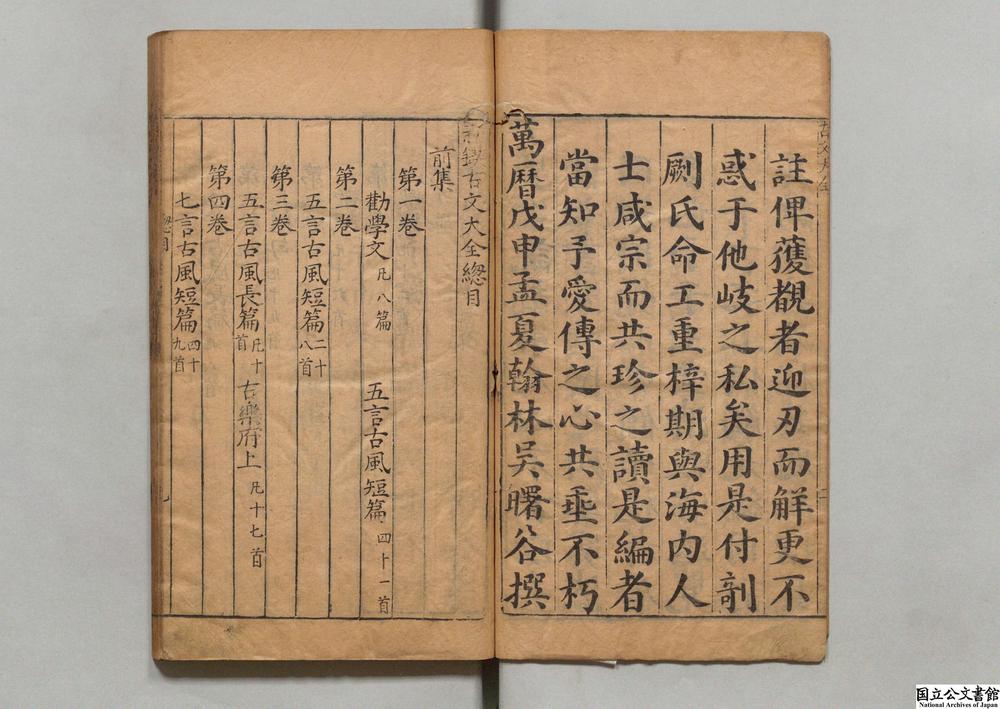 註俾獲覩者迎刃而解更不
惑于他岐之私矣用是付剞
劂氏命工重梓期與海内人
士咸宗而共珍之讀是編者
當知予愛傳之心共垂不朽
萬曆戊申孟夏翰林吳曙谷撰
古文大全總目
前集
第一卷
勸學文 凡八篇 五言古風短篇 四十一首
第二卷
五言古風短篇 二十八首
第三卷
五言古風長篇 凡十首 古樂府上 凡十七首
第四卷
七言古風短篇 四十九首
總目
国立公文書館
National Archives of Japan